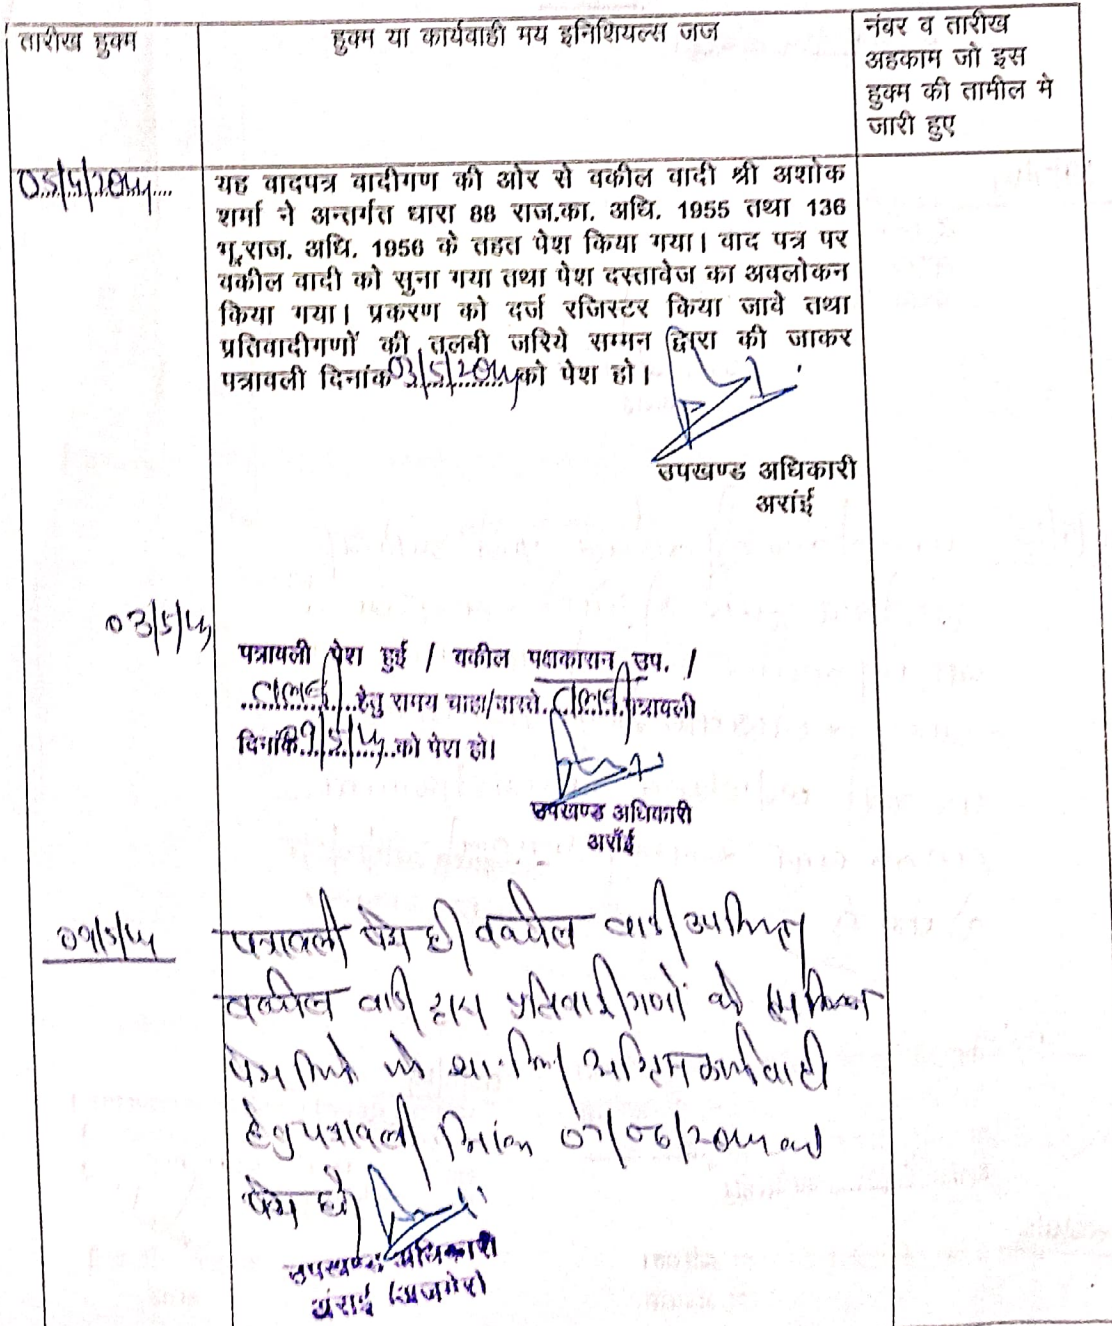 तारीख हुक्म
हुक्म या कार्यवाही मय इनिशियल्स जज
नंबर व तारीख
अहकाम जो इस
हुक्म की तामील मे
जारी हुए
यह वादपत्र वादीगण की ओर से वकील वादी श्री अशोक
शर्मा ने अन्तर्गत धारा 88 राज.का. अधि. 1955 तथा 136
भू.राज. अधि. 1956 के तहत पेश किया गया। वाद पत्र पर
वकील वादी को सुना गया तथा पेश दस्तावेज का अवलोकन
किया गया। प्रकरण को दर्ज रजिस्टर किया जावे तथा
प्रतिवादीगणों की तलबी जरिये सम्मन द्वारा की जाकर
पत्रावली दिनांक 03/5/2024 को पेश हो।
उपखण्ड अधिकारी
अरांई
03/5/24
पत्रावली पेश हुई / वकील पक्षकारान उप. /
तलबी हेतु समय चाहा/वास्ते तलबी पत्रावली
दिनांक 09/5/24 को पेश हो।
उपखण्ड अधिकारी
अराँई
09/5/24
पत्रावली पेश हुई वकील वादी उपस्थित
वकील वादी द्वारा प्रतिवादीगणों को
पेश अग्रिम कार्यवाही
हेतु पत्रावली दिनांक 07/06/2024 को
पेश हो
उपखण्ड अधिकारी
अंराई (अजमेर)